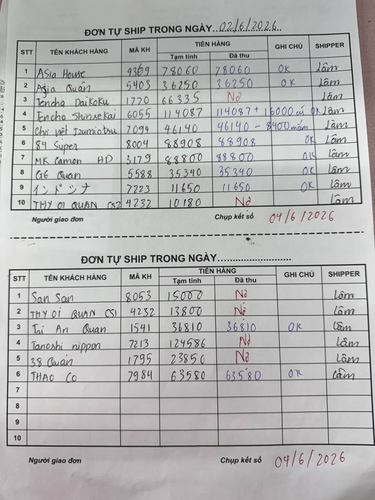 ĐƠN TỰ SHIP TRONG NGÀY 02/6/2026
STT TÊN KHÁCH HÀNG MÃ KH TIỀN HÀNG GHI CHÚ SHIPPER
Tạm tính Đã thu
1 Asia House 9369 78060 78060 OK Lâm
2 Asia Quán 5403 36250 36250 OK Lâm
3 Tencha Daikoku 1770 66335 Nợ Lâm
4 Tencha Shinsekai 6055 114087 114087 + 16000 OK Lâm
5 Chợ việt Izumiotsu 7094 46140 46140 - 8400 mắm Lâm
6 84 Super 8004 88908 88908 OK Lâm
7 MK Camon HD 3179 88800 88800 OK Lâm
8 GG Quan 5588 35340 35340 OK Lâm
9 インドシナ 7223 11650 11650 OK Lâm
10 THY ƠI QUÁN CS2 4232 10180 Nợ Lâm
Người giao đơn Chụp kết sổ 04/6/2026
ĐƠN TỰ SHIP TRONG NGÀY......................
STT TÊN KHÁCH HÀNG MÃ KH TIỀN HÀNG GHI CHÚ SHIPPER
Tạm tính Đã thu
1 San San 8053 15000 Nợ Lâm
2 THY ƠI QUÁN CS1 4232 13800 Nợ Lâm
3 Tai An Quan 1541 36810 36810 OK Lâm
4 Tanoshi nippon 7213 124586 Nợ Lâm
5 38 Quán 1795 23850 Nợ Lâm
6 THAO CO 7984 63580 63580 OK Lâm
7
8
9
10
Người giao đơn Chụp kết sổ 04/6/2026